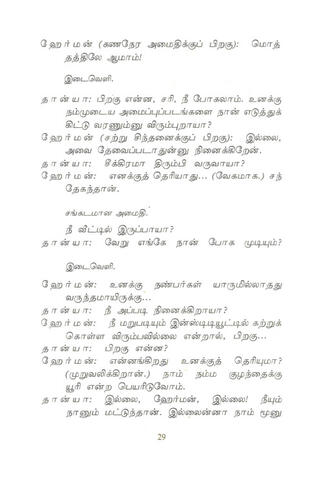 ஹேர்மன் (கணநேர அமைதிக்குப் பிறகு): மொத்
தத்திலே ஆமாம்!
இடைவெளி.
தான்யா: பிறகு என்ன, சரி, நீ போகலாம். உனக்கு
நம்முடைய அமைப்புப்படங்களை நான் எடுத்துக்
கிட்டு வரணும்னு விரும்புறாயா?
ஹேர்மன் (சற்று சிந்தனைக்குப் பிறகு): இல்லை,
அவை தேவைப்படாதுன்னு நினைக்கிறேன்.
தான்யா: சீக்கிரமா திரும்பி வருவாயா?
ஹேர்மன்: எனக்குத் தெரியாது... (வேகமாக.) சந்
தேகந்தான்.
சங்கடமான அமைதி.
நீ வீட்டில் இருப்பாயா?
தான்யா: வேறு எங்கே நான் போக முடியும்?
இடைவெளி.
ஹேர்மன்: உனக்கு நண்பர்கள் யாருமில்லாதது
வருந்தமாயிருக்கு...
தான்யா: நீ அப்படி நினைக்கிறாயா?
ஹேர்மன்: நீ மறுபடியும் இன்ஸ்டிடியூட்டில் கற்றுக்
கொள்ள விரும்பவில்லை என்றால், பிறகு...
தான்யா: பிறகு என்ன?
ஹேர்மன்: என்னங்கிறது உனக்குத் தெரியுமா?
(முறுவலிக்கிறான்.) நாம் நம்ம குழந்தைக்கு
யூரி என்ற பெயரிடுவோம்.
தான்யா: இல்லை, ஹேர்மன், இல்லை! நீயும்
நானும் மட்டுந்தான். இல்லைன்னா நாம் மூனு
29